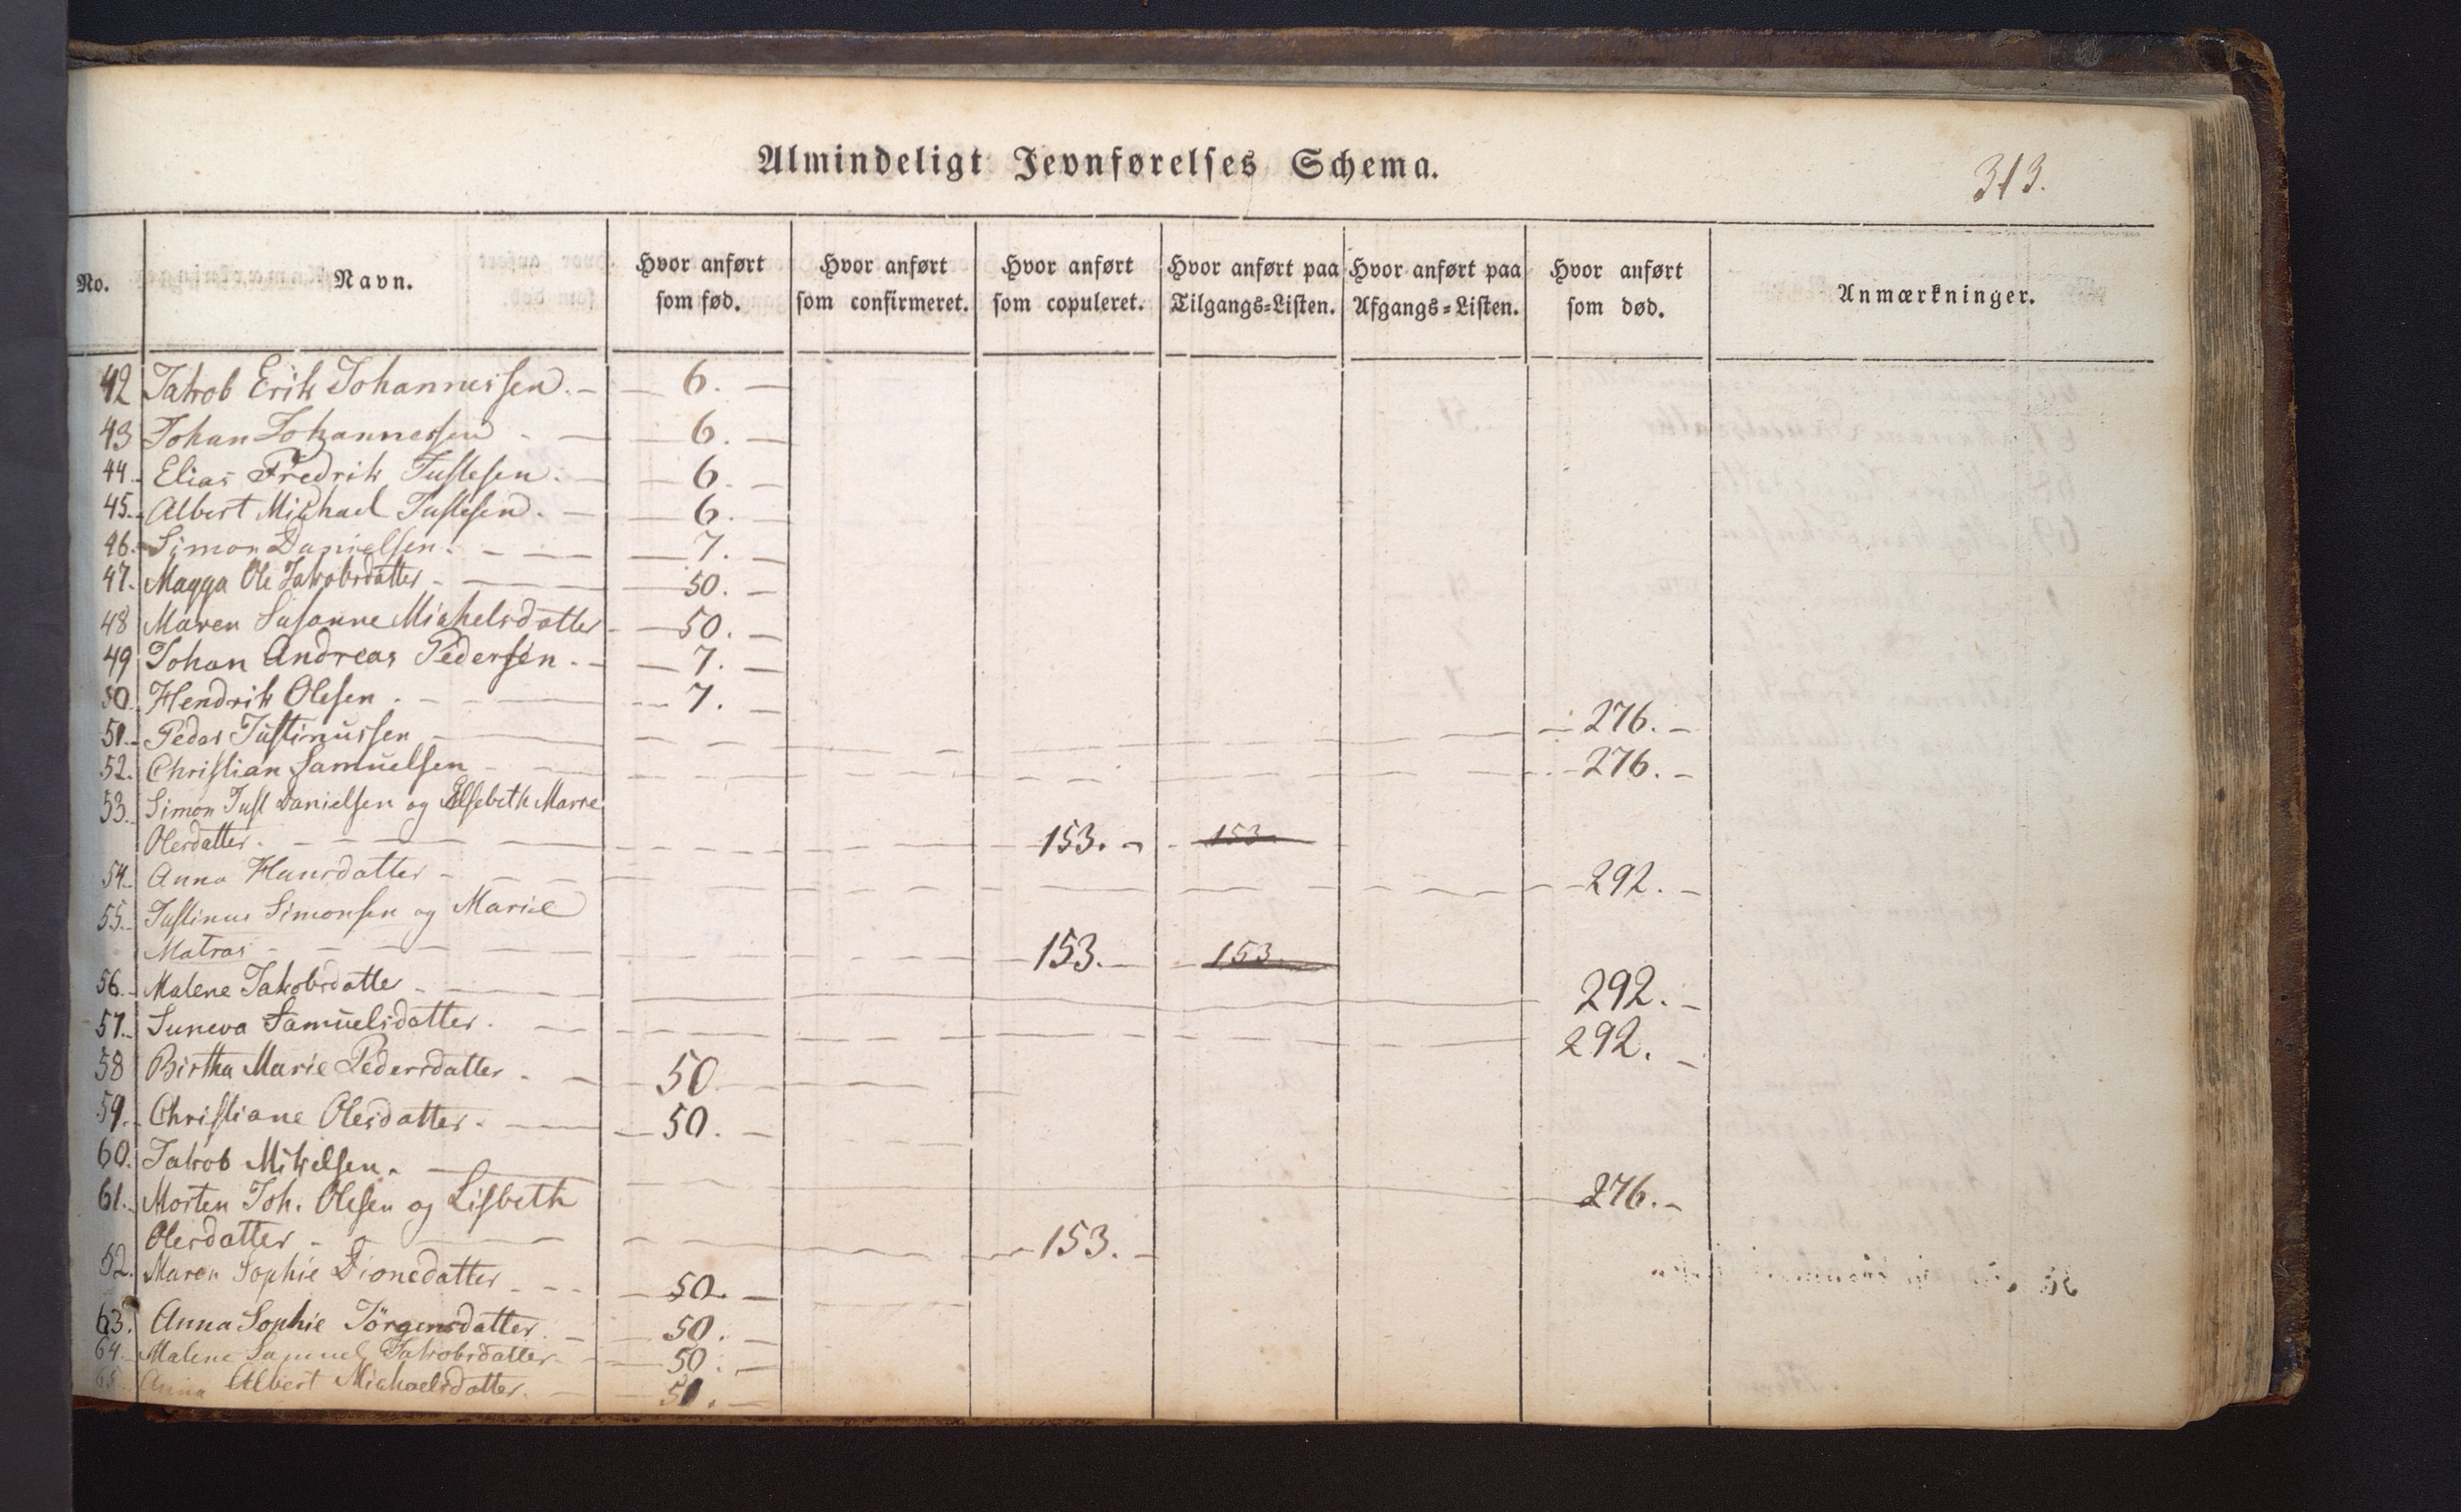 Almindeligt Jevnførelses Schema.
313.
No. Navn. Hvor anført som fød. Hvor anført som confirmeret. Hvor anført som copuleret. Hvor anført paa Tilgangs=Listen. Hvor anført paa Afgangs=Listen. Hvor anført som død. Anmærkninger.
42 Jakob Erik Johannessen. 6.
43 Johan Johannessen 6.
44. Elias Fredrik Justesen. 6.
45. Albert Michael Justesen. 6.
46. Simon Danielsen. 7.
47. Magga Ole Jakobsdatter 50.
48 Maren Susanne Michelsdatter 50.
49 Johan Andreas Pedersen. 7.
50. Hendrik Olesen. 7.
51. Peder Justinussen 276.
52. Christian Samuelsen 276.
53. Simon Just Danielsen og Elsebeth Marie
Olesdatter. 153. 153
54. Anna Hansdatter 292.
55. Justinus Simonsen og Marie
Matras 153. 153.
56. Malene Jakobsdatter 292.
57. Suneva Samuelsdatter. 292.
58 Birtha Marie Pedersdatter. 50
59. Christiane Olesdatter. 50.
60. Jakob Mikelsen. 276.
61. Morten Joh. Olesen og Lisbeth
Olesdatter 153.
62. Maren Sophie Dionedatter 50.
63. Anna Sophie Jörgensdatter. 50.
64. Malene Samuel Jakobsdatter 50.
65. Anna Albert Michaelsdatter. 51.